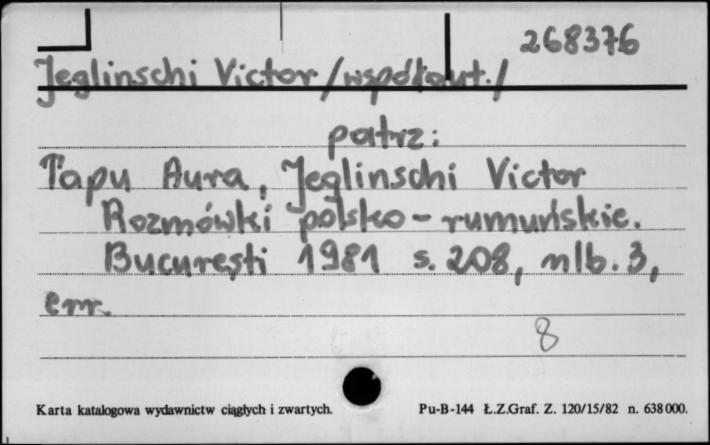 268376
Jeglinschi Victor /współaut./
patrz:
Ţapu Aura, Jeglinschi Victor
Rozmówki polsko-rumuńskie.
Bucureşti 1981 s. 208, nlb. 3,
err.
8
Karta katalogowa wydawnictw ciągłych i zwartych. Pu-B-144 Ł.Z.Graf. Z. 120/15/82 n. 638 000.